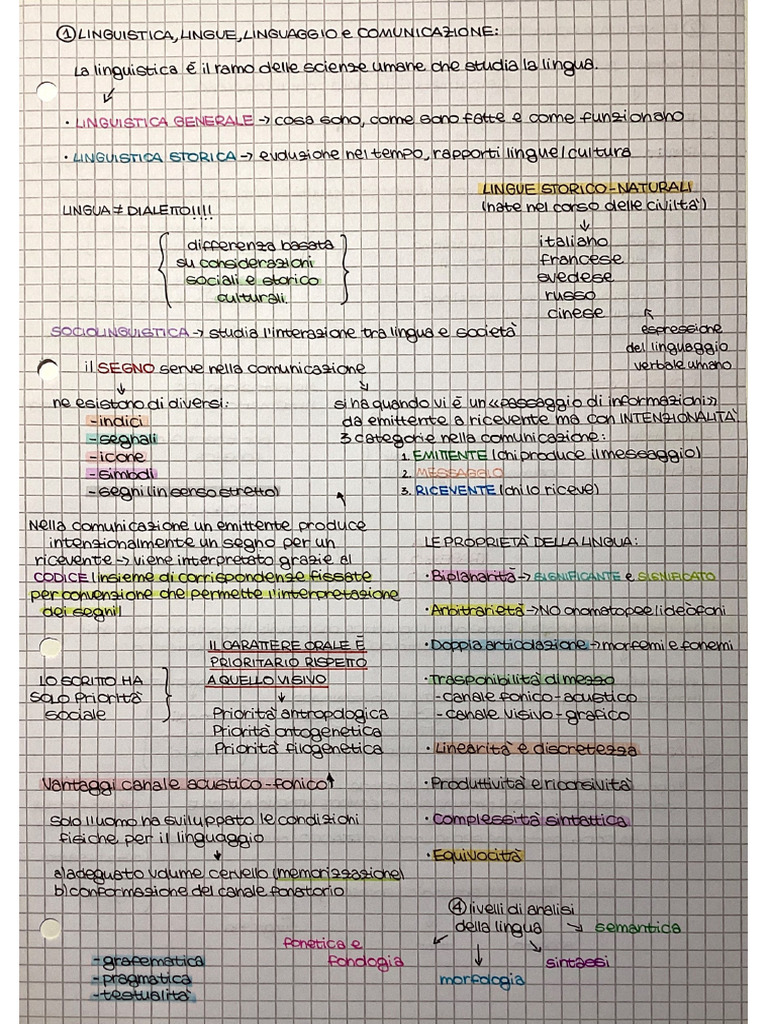 ① LINGUISTICA, LINGUE, LINGUAGGIO e COMUNICAZIONE:
La linguistica è il ramo delle scienze umane che studia la lingua.
• LINGUISTICA GENERALE → cosa sono, come sono fatte e come funzionano
• LINGUISTICA STORICA → evoluzione nel tempo, rapporti lingue/cultura
LINGUE STORICO-NATURALI
(nate nel corso delle civiltà)
↓
italiano
francese
svedese
russo
cinese
espressione
del linguaggio
verbale umano
LINGUA ≠ DIALETTO!!!!
differenza basata
su considerazioni
sociali e storico
culturali.
SOCIOLINGUISTICA → studia l'interazione tra lingua e società
il SEGNO serve nella comunicazione
ne esistono di diversi:
-indici
-segnali
-icone
-simboli
-segni (in senso stretto)
si ha quando vi è un «passaggio di informazioni»
da emittente a ricevente ma con INTENZIONALITÀ
3 categorie nella comunicazione:
1. EMITTENTE (chi produce il messaggio)
2. MESSAGGIO
3. RICEVENTE (chi lo riceve)
Nella comunicazione un emittente produce
intenzionalmente un segno per un
ricevente → viene interpretato grazie al
CODICE (insieme di corrispondenze fissate
per convenzione che permette l'interpretazione
dei segni)
IL CARATTERE ORALE È
PRIORITARIO RISPETTO
A QUELLO VISIVO
↓
Priorità antropologica
Priorità ontogenetica
Priorità filogenetica
LO SCRITTO HA
SOLO Priorità
sociale
Vantaggi canale acustico-fonico↑
Solo l'uomo ha sviluppato le condizioni
fisiche per il linguaggio
↓
a) adeguato volume cervello (memorizzazione)
b) conformazione del canale fonatorio
LE PROPRIETÀ DELLA LINGUA:
• Biplanarità → SIGNIFICANTE e SIGNIFICATO
• Arbitrarietà → NO onomatopee/ideofoni
• Doppia articolazione → morfemi e fonemi
• Trasponibilità di mezzo
-canale fonico-acustico
-canale visivo-grafico
• Linearità e discretezza
• Produttività e ricorsività
• Complessità sintattica
• Equivocità
④ livelli di analisi
della lingua
→ semantica
fonetica e
fonologia
morfologia
sintassi
-grafematica
-pragmatica
-testualità